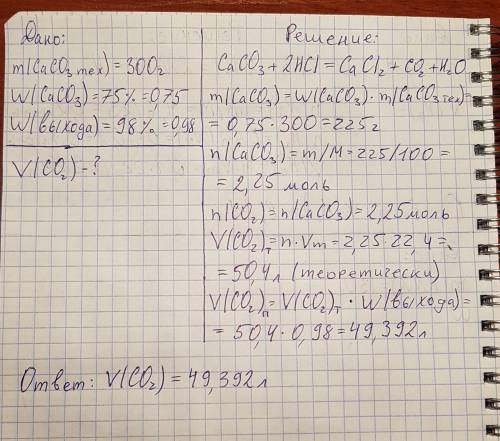 Дано:
m(CaCO₃ тех) = 300г
W(CaCO₃) = 75% = 0,75
W(выхода) = 98% = 0,98
V(CO₂) - ?
Решение:
CaCO₃ + 2HCl = CaCl₂ + CO₂ + H₂O
m(CaCO₃) = W(CaCO₃) · m(CaCO₃ тех) =
= 0,75 · 300 = 225г
n(CaCO₃) = m/M = 225/100 =
= 2,25 моль
n(CO₂) = n(CaCO₃) = 2,25 моль
V(CO₂)т = n · Vm = 2,25 · 22,4 =
= 50,4 л (теоретически)
V(CO₂)п = V(CO₂)т · W(выхода) =
= 50,4 · 0,98 = 49,392 л
Ответ: V(CO₂) = 49,392 л